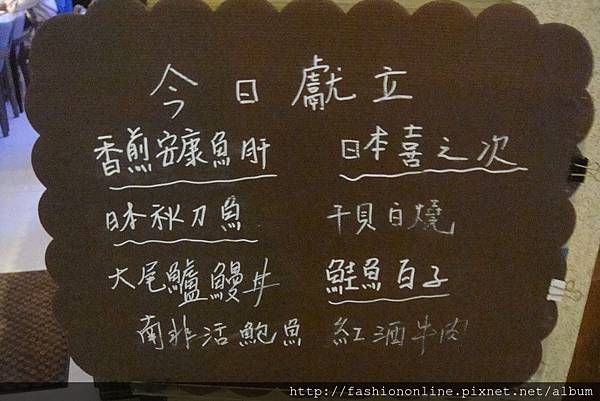 今日獻立
香煎安康魚肝 日本喜之次
日本秋刀魚 干貝白燒
大尾鱸鰻丼 鮭魚白子
南非活鮑魚 紅酒牛肉
http://fashiononline.pixnet.net/album